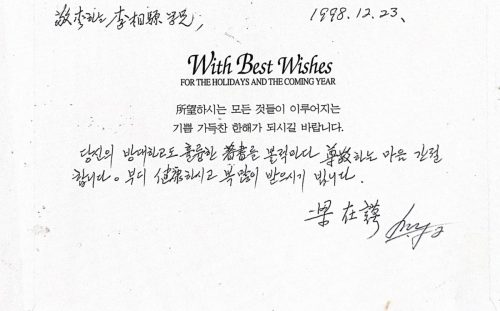 敬愛하는 李相縣 学兄, 1998. 12. 23.
With Best Wishes
FOR THE HOLIDAYS AND THE COMING YEAR
所望하시는 모든 것들이 이루어지는
기쁨 가득찬 한해가 되시길 바랍니다.
당신의 방대하고도 훌륭한 著書를 볼적마다 尊敬하는 마음 간절
합니다. 부디 健康하시고 복 많이 받으시기 빕니다.
梁 在 謨